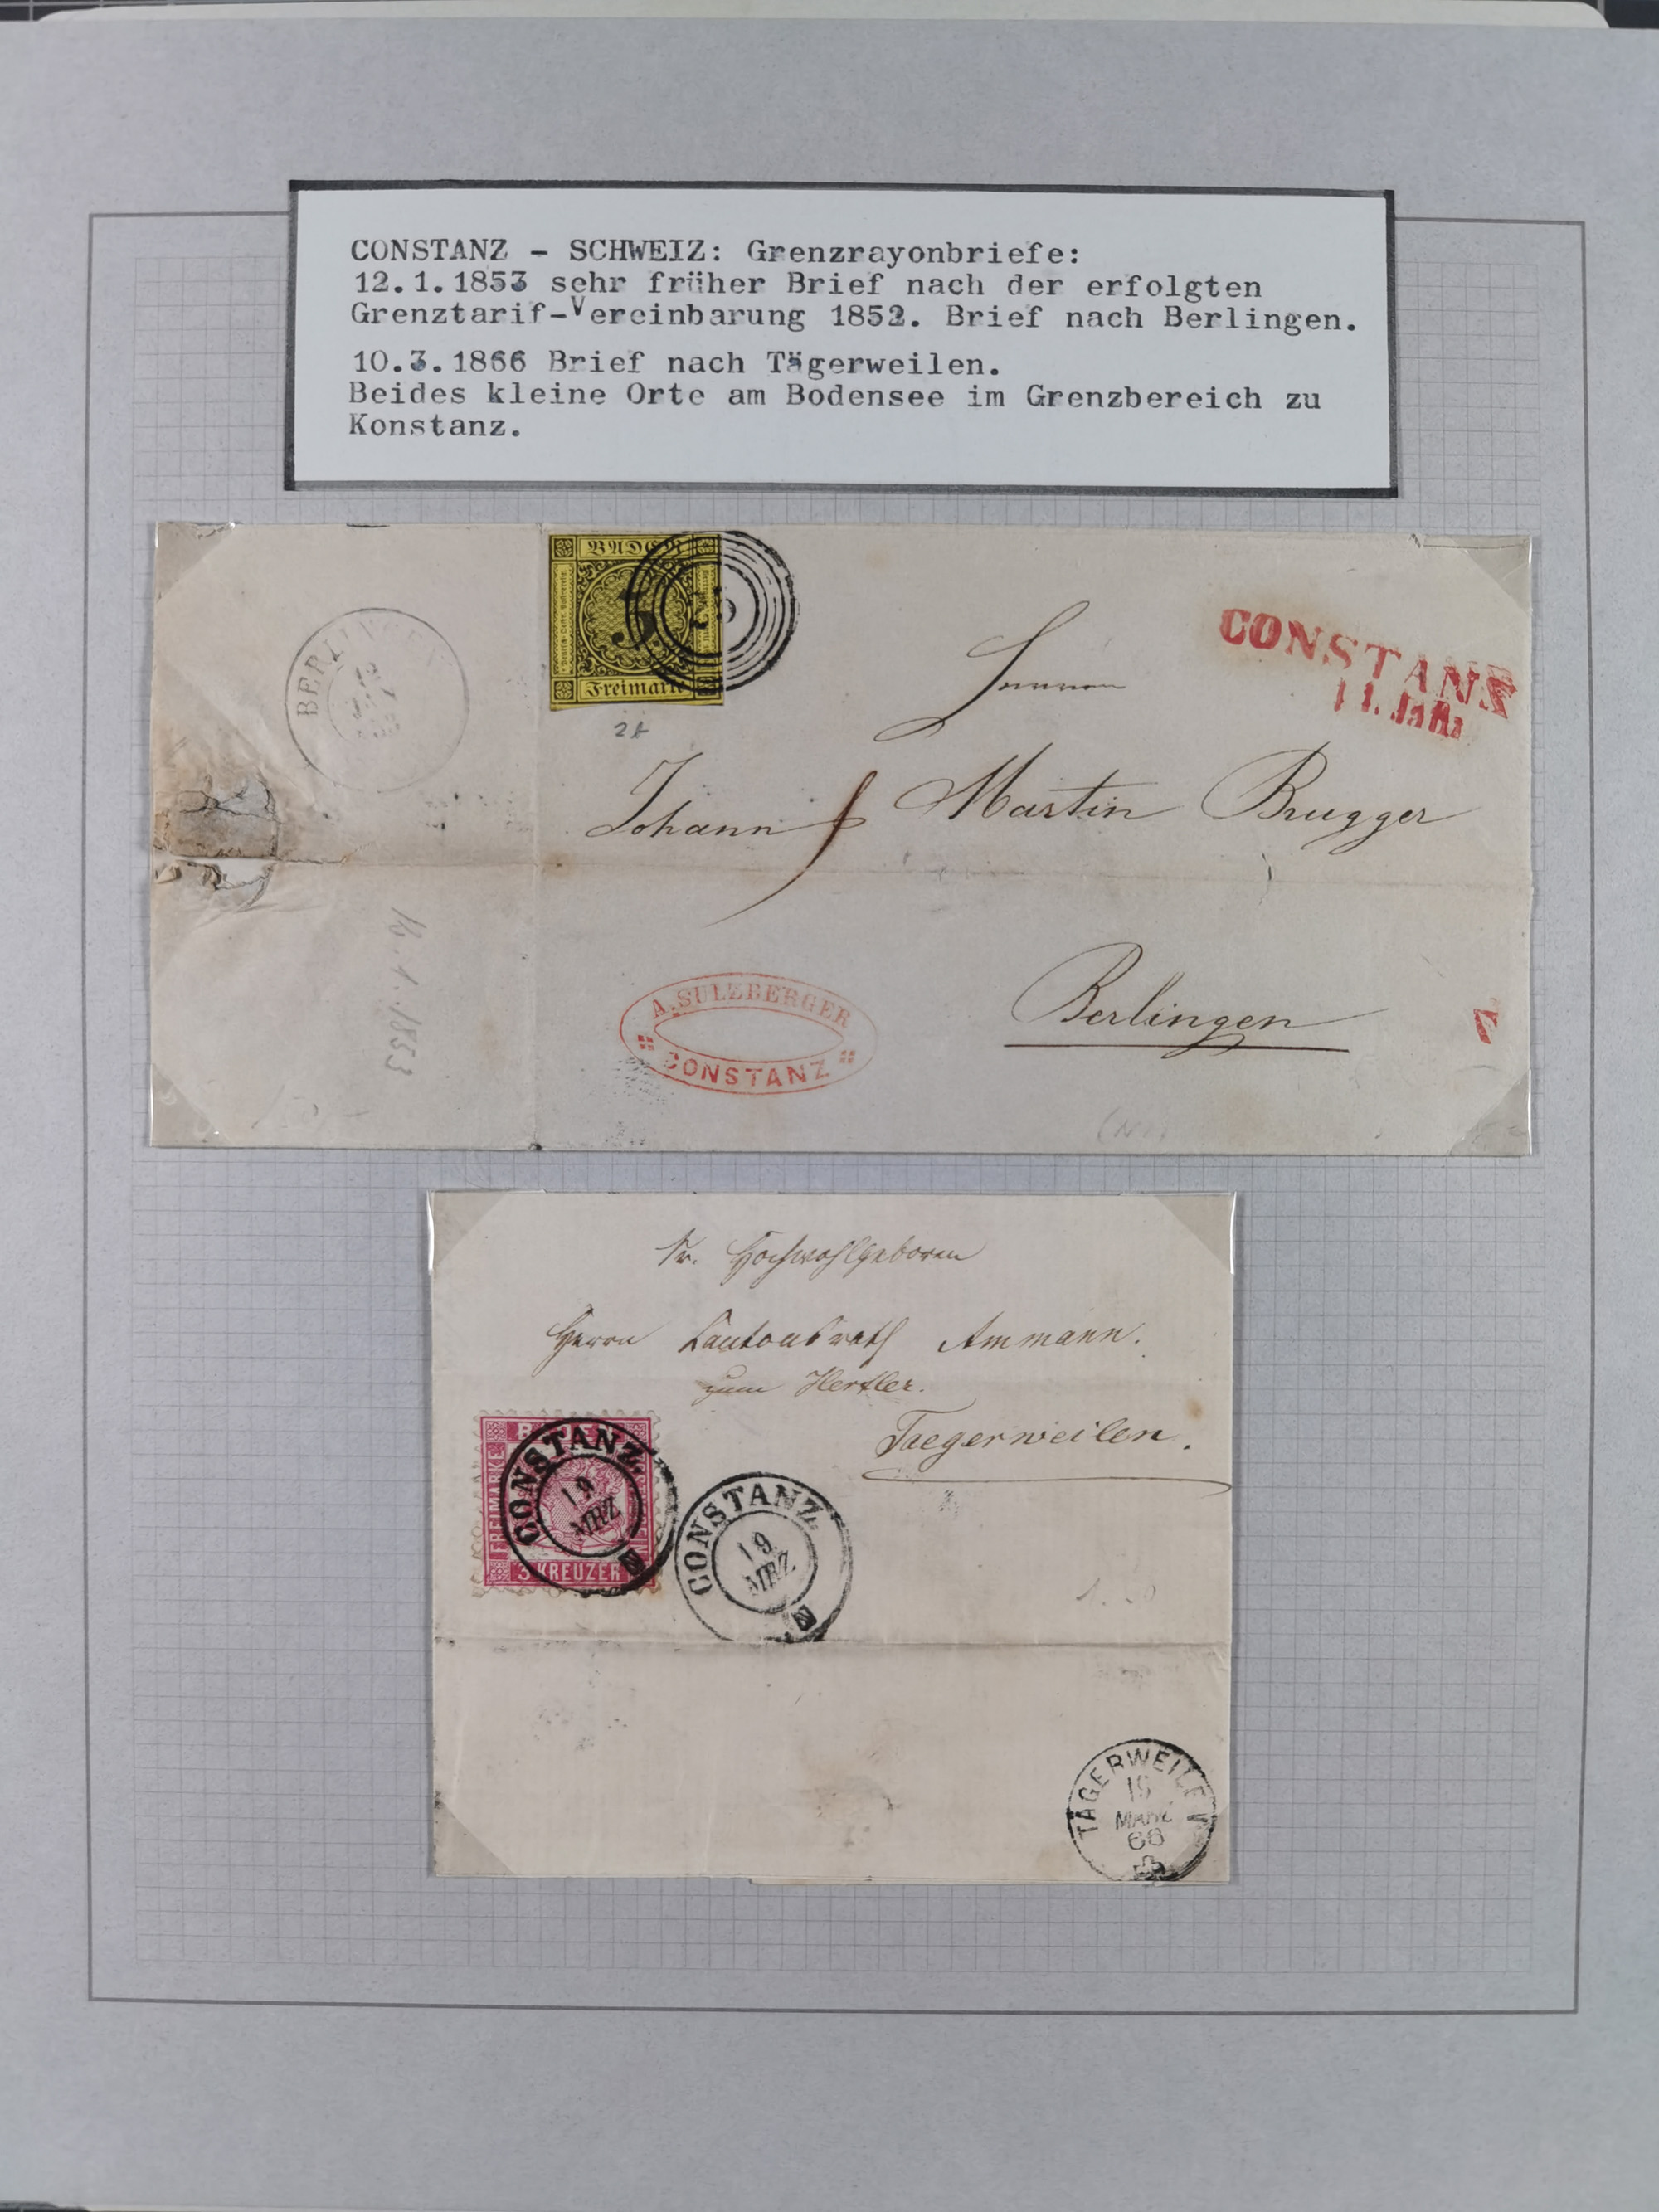 CONSTANZ - SCHWEIZ: Grenzrayonbriefe:
12.1.1853 sehr früher Brief nach der erfolgten
Grenztarif-Vereinbarung 1852. Brief nach Berlingen.
10.3.1866 Brief nach Tägerweilen.
Beides kleine Orte am Bodensee im Grenzbereich zu
Konstanz.
BADEN
3
Freimarke
25
CONSTANZ
11. Jan.
BERLINGEN
2A
Johann Martin Brugger
Berlingen
Z
.1.1853
A. SULZBERGER
CONSTANZ
Sr. Hochwohlgeboren
Herrn Kantonsrath Ammann.
zum Hertler.
Taegerweilen.
BADEN
FREIMARKE
3 KREUZER
CONSTANZ.
19
MRZ
CONSTANZ.
19
MRZ
TÄGERWEILEN
19
MÄRZ
66